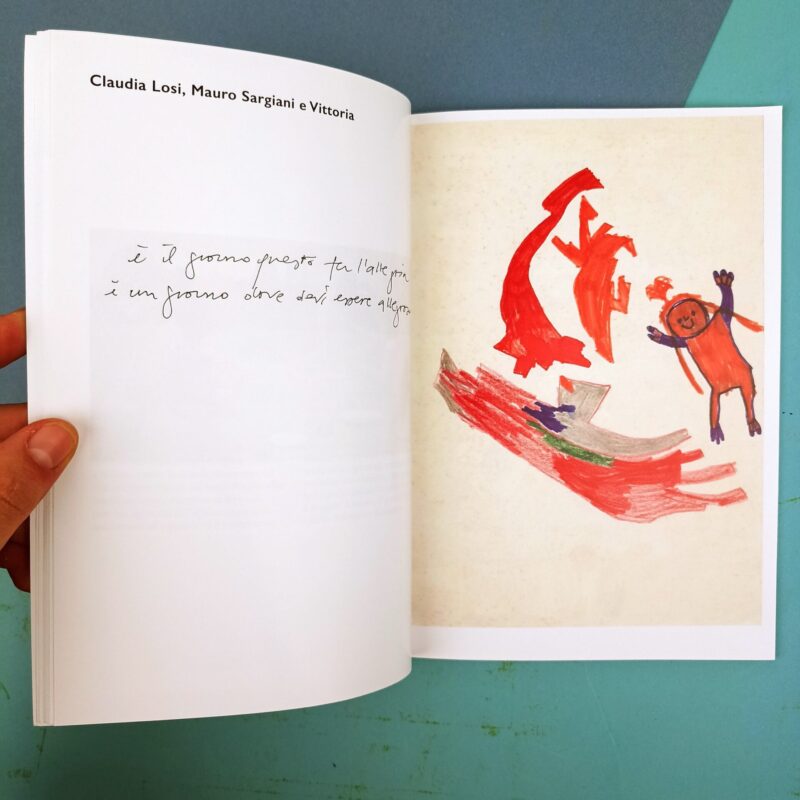 Claudia Losi, Mauro Sargiani e Vittoria
è il giorno questo fu l'allegria
è un giorno dove devi essere allegro